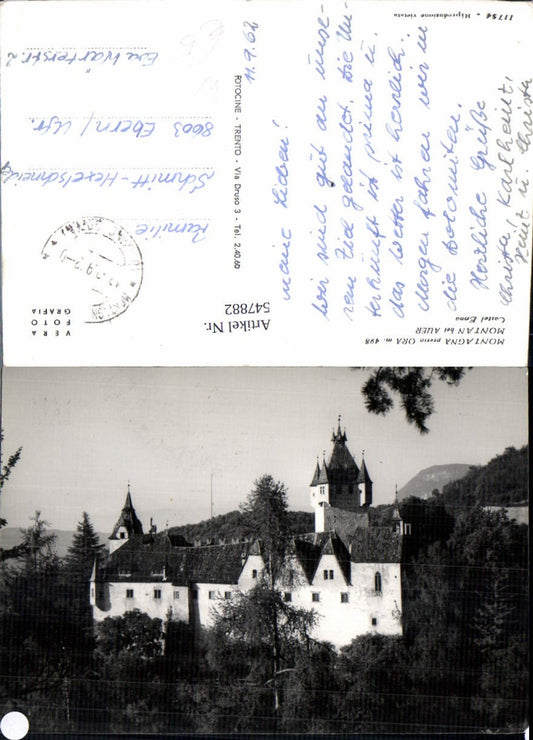 11754 - Riproduzione vietata
MONTAGNA presso ORA m. 498
MONTAN bei AUER
Castel Enna
11.9.62
Meine Lieben!
Wir sind gut an unse-
rem Ziel gelandet. Die Un-
terkunft ist prima u.
das Wetter ist herrlich.
Morgen fahren wir in
die Dolomiten.
Herzliche Grüße
Christa, Karlheinz,
u. Christa
FOTOCINE - TRENTO - Via Druso 3 - Tel. 2.40.60
Artikel Nr.
547882
VERA
FOTO
GRAFIA
Familie
Schmitt-Hexelschneider
8603 Ebern/Ufr.